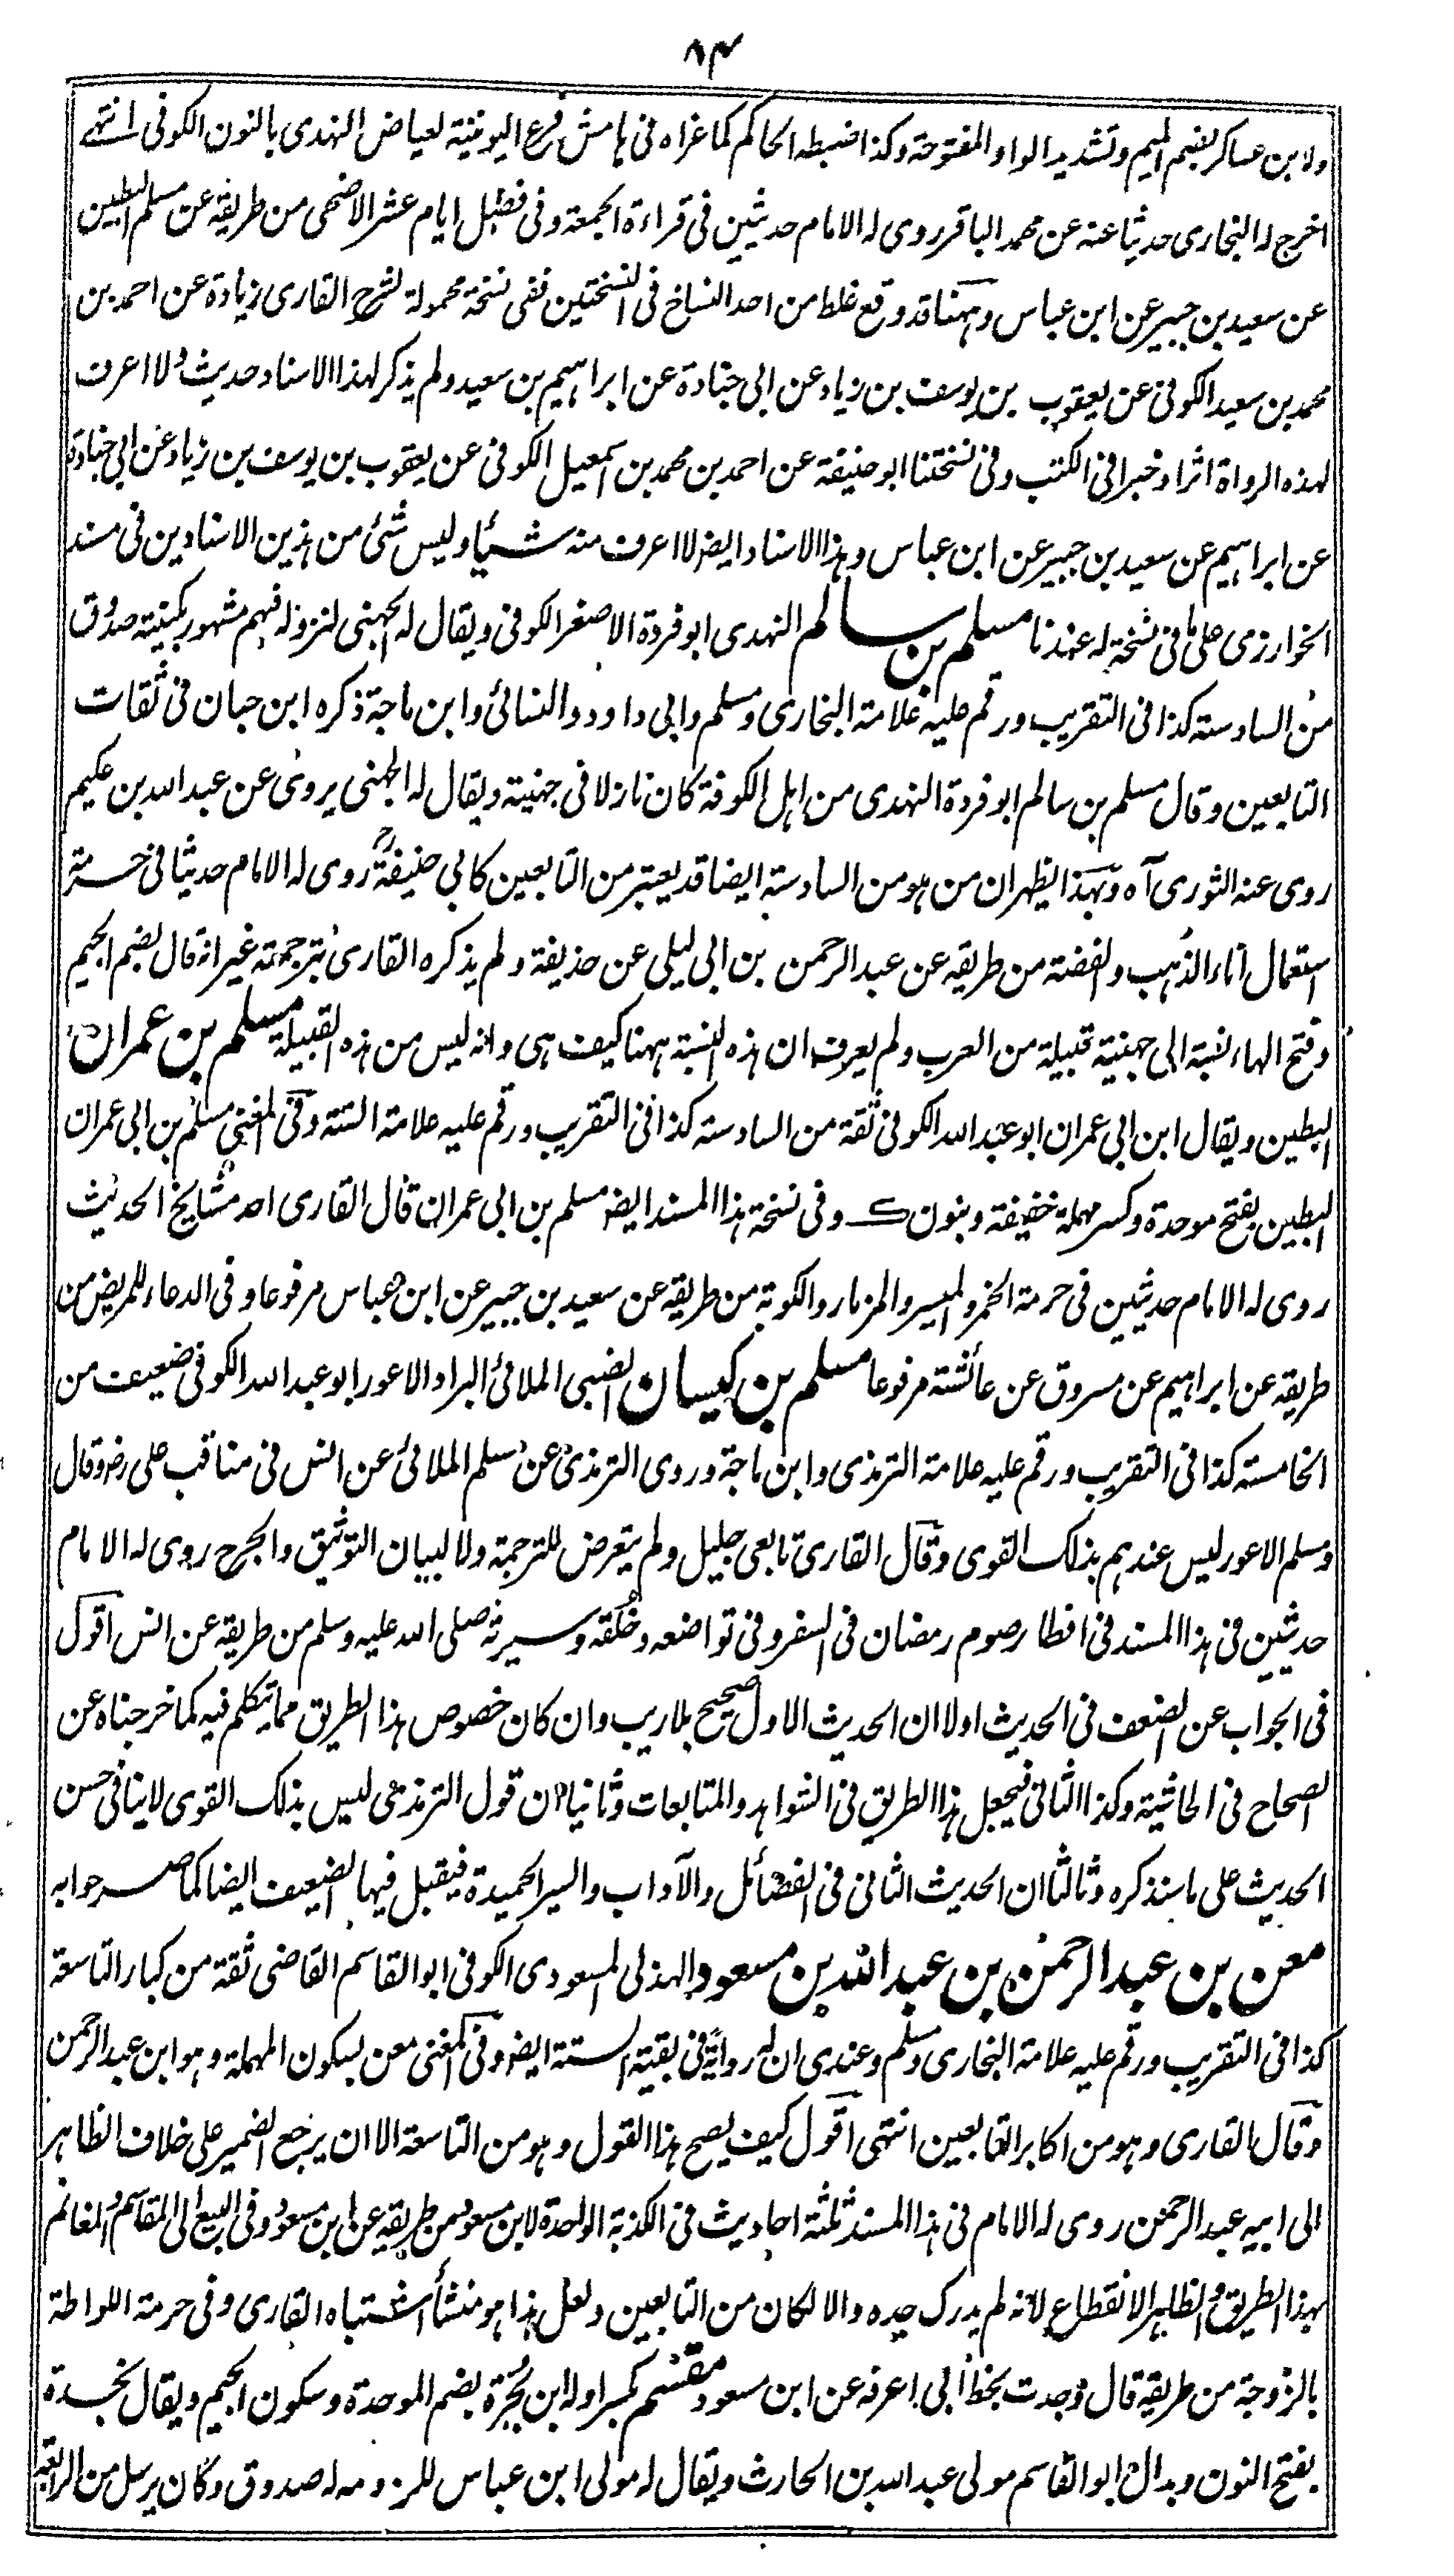 ٨٤
ولابن عساكر بضم الميم وتشديد الواو المفتوحة وكذا ضبطه الحاكم كما عزاه فى هامش فرع اليونينية لعياض النهدى بالنون الكوفى انتهے
اخرج له البخارى حديثا عنه عن محمد الباقر روى له الامام حديثين فى قراءة الجمعة وفى فضل ايام عشر الاضحى من طريقه عن مسلم البطين
عن سعيد بن جبير عن ابن عباس وههنا قد وقع غلط من احد النساخ فى النسختين ففى نسخة محمولة لشرح القارى زيادة عن احمد بن
محمد بن سعيد الكوفى عن يعقوب بن يوسف بن زياد عن ابى جنادة عن ابراهيم بن سعيد ولم يذكر لهذا الاسناد حديث ولا اعرف
لهذه الرواة اثرا وخبرا فى الكتب وفى نسختنا ابو حنيفة عن احمد بن محمد بن اسمعيل الكوفى عن يعقوب بن يوسف بن زياد عن ابى جنادة
عن ابراهيم عن سعيد بن جبير عن ابن عباس وهذا الاسناد ايضا لا اعرف منه شيئا وليس شئ من هذين الاسنادين فى مسند
الخوارزمى على ما فى نسخة له عندنا مسلم بن سالم النهدى ابو فروة الاصغر الكوفى ويقال له الجهنى لنزوله فيهم مشهور بكنيته صدوق
من السادسة كذا فى التقريب ورقم عليه علامة البخارى ومسلم وابى داود والنسائى وابن ماجة ذكره ابن حبان فى ثقات
التابعين وقال مسلم بن سالم ابو فروة النهدى من اهل الكوفة كان نازلا فى جهنية ويقال له الجهنى يروى عن عبد الله بن عكيم
روى عنه الثورى آه وبهذا يظهر ان من هو من السادسة ايضا قد يعتبر من التابعين كابى حنيفةؒ روى له الامام حديثا فى حرمة
استعمال اناء الذهب والفضة من طريقه عن عبد الرحمن بن ابى ليلى عن حذيفة ولم يذكره القارى بترجمته غير انه قال بضم الجيم
وفتح الهاء نسبة الى جهنية قبيلة من العرب ولم يعرف ان هذه النسبة ههنا كيف هى وانه ليس من هذه القبيلة مسلم بن عمران
البطين ويقال ابن ابى عمران ابو عبد الله الكوفى ثقة من السادسة كذا فى التقريب ورقم عليه علامة الستة وفى المغنى مسلم بن ابى عمران
البطين بفتح موحدة وكسر مهملة خفيفة وبنون ک وفى نسخة هذا المسند ايضا مسلم بن ابى عمران قال القارى احد مشايخ الحديث
روى له الامام حديثين فى حرمة الخمر والميسر والمزمار والكوبة من طريقه عن سعيد بن جبير عن ابن عباس مرفوعا وفى الدعاء للمريض من
طريقه عن ابراهيم عن مسروق عن عائشة مرفوعا مسلم بن كيسان الضبى الملائى البراد الاعور ابو عبد الله الكوفى ضعيف من
الخامسة كذا فى التقريب ورقم عليه علامة الترمذى وابن ماجة وروى الترمذى عن مسلم الملائى عن انس فى مناقب على رض وقال
ومسلم الاعور ليس عندهم بذلك القوى وقال القارى تابعى جليل ولم يتعرض للترجمة ولا لبيان التوثيق والجرح روى له الامام
حديثين فى هذا المسند فى افطار صوم رمضان فى السفر وفى تواضعه وخلقه وسيرته صلى الله عليه وسلم من طريقه عن انس اقول
فى الجواب عن الضعف فى الحديث اولا ان الحديث الاول صحيح بلا ريب وان كان خصوص هذا الطريق مما يتكلم فيه كما خرجناه عن
الصحاح فى الحاشية وكذا الثانى فيجعل هذا الطريق فى الشواهد والمتابعات وثانيا ان قول الترمذى ليس بذلك القوى لا ينافى حسن
الحديث على ما سنذكره وثالثا ان الحديث الثانى فى الفضائل والآداب والسير الحميدة فيقبل فيها الضعيف ايضا كما صرحوا به
معن بن عبد الرحمن بن عبد الله بن مسعود الهذلى المسعودى الكوفى ابو القاسم القاضى ثقة من كبار التاسعة
كذا فى التقريب ورقم عليه علامة البخارى ومسلم وعندى ان له رواية فى بقية الستة ايضا وفى المغنى معن بسكون المهملة وهو ابن عبد الرحمن
وقال القارى وهو من اكابر التابعين انتهى اقول كيف يصح هذا القول وهو من التاسعة الا ان يرجع الضمير على خلاف الظاهر
الى ابيه عبد الرحمن روى له الامام فى هذا المسند ثلثة احاديث فى الكذبة الواحدة لابن مسعود من طريقه عن ابن مسعود وفى البيع الى المقاسم والمغانم
بهذا الطريق والظاهر الانقطاع لانه لم يدرك جده والا لكان من التابعين ولعل هذا هو منشأ اشتباه القارى وفى حرمة اللواطة
بالزوجة من طريقه قال وجدت بخط ابى اعرفه عن ابن مسعود مقسم بكسر اوله ابن بجرة بضم الموحدة وسكون الجيم ويقال نجدة
بفتح النون وبدال ابو القاسم مولى عبد الله بن الحارث ويقال له مولى ابن عباس للزومه له صدوق وكان يرسل من الرابعة